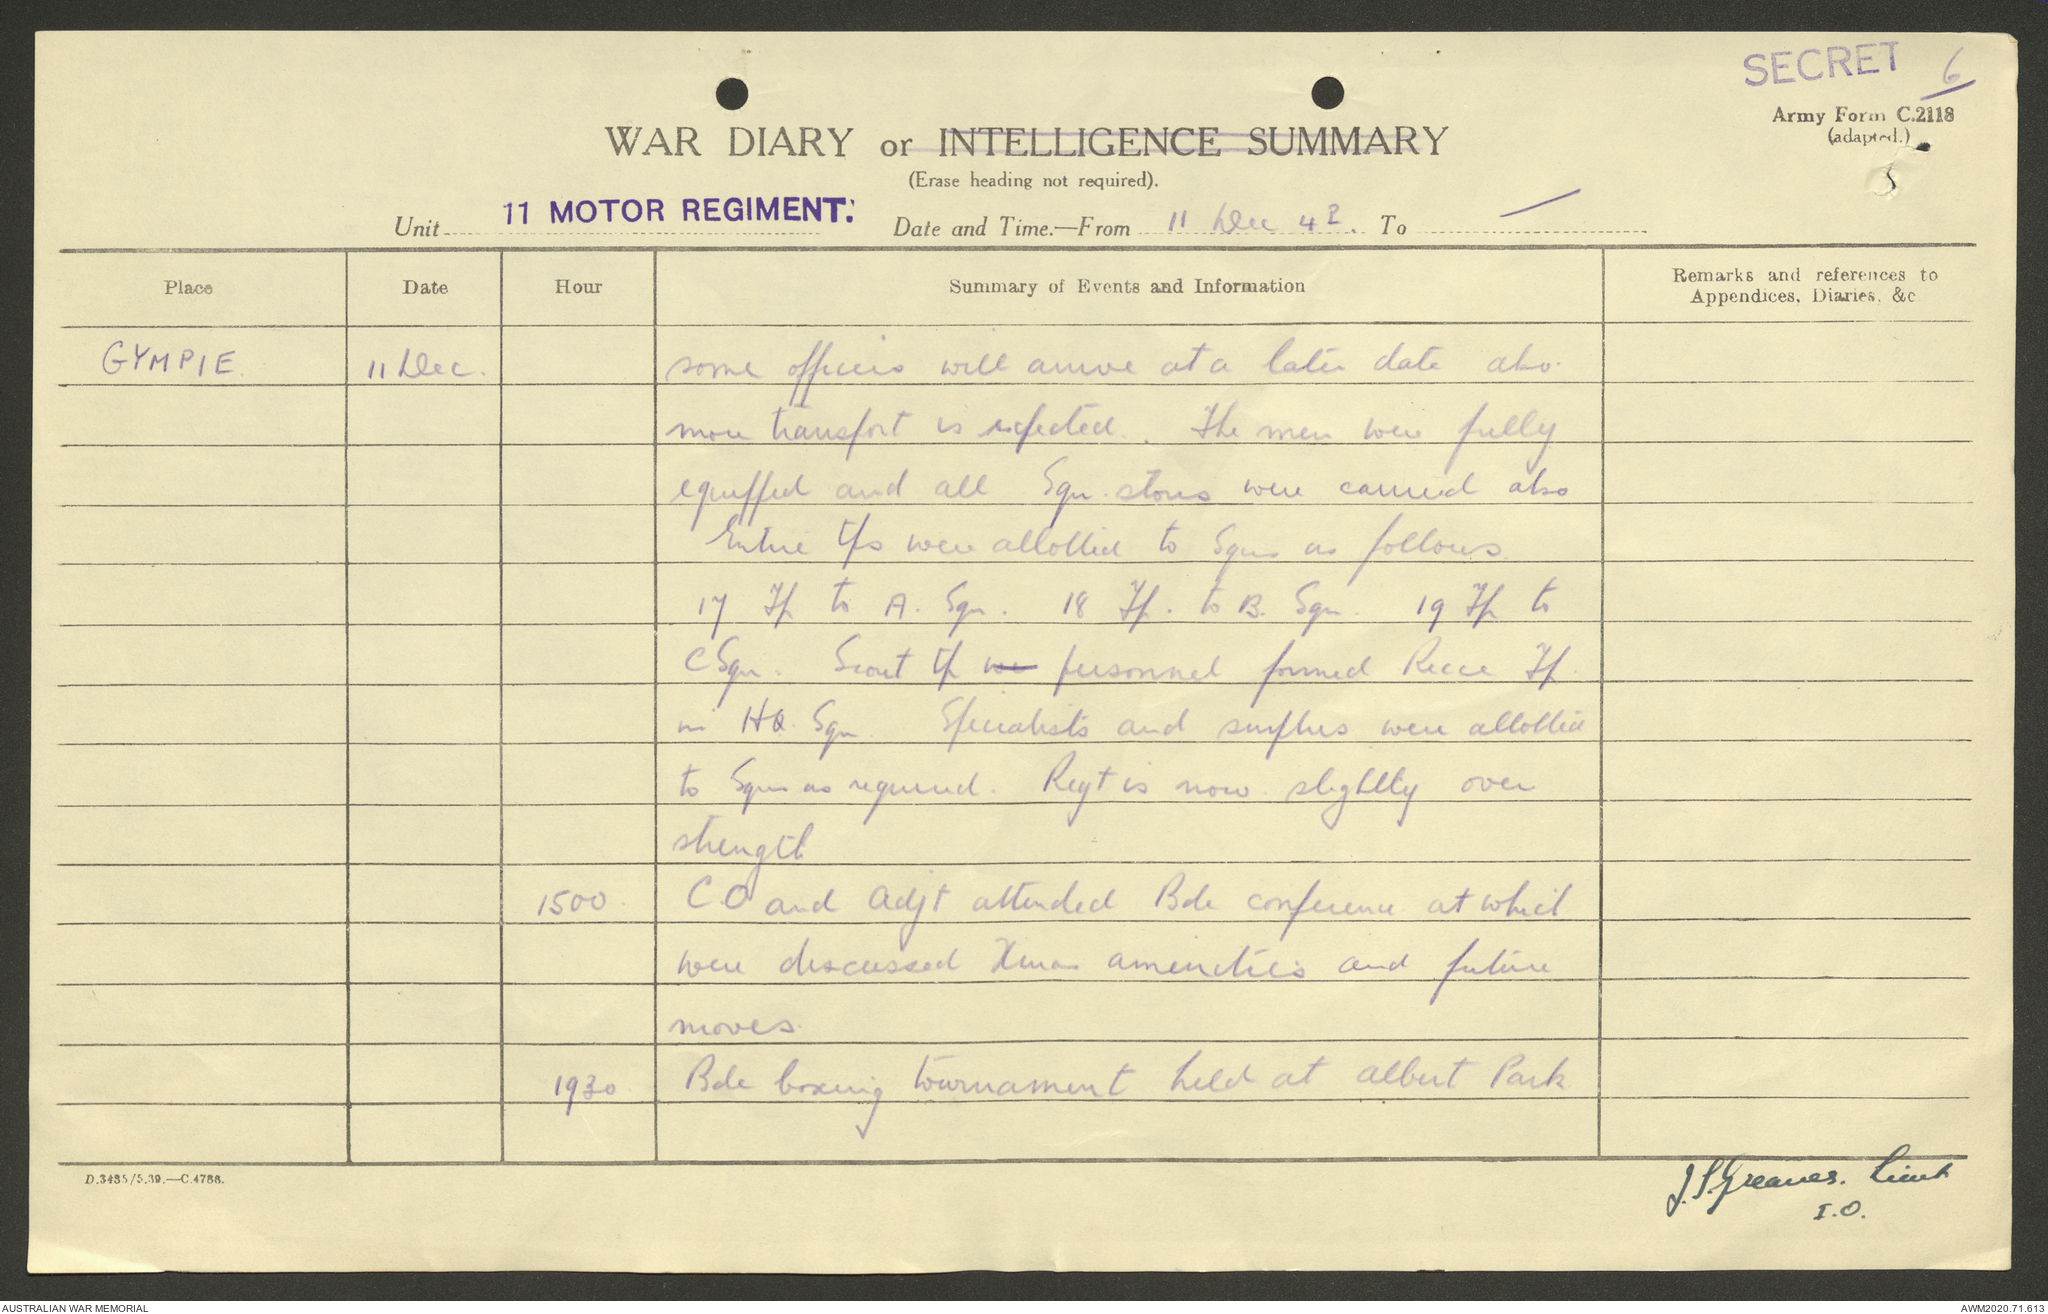 SECRET 6
Army Form C.2118
(adapted.)
WAR DIARY or INTELLIGENCE SUMMARY
(Erase heading not required).
Unit 11 MOTOR REGIMENT. Date and Time.—From 11 Dec 42. To —
Place Date Hour Summary of Events and Information Remarks and references to
Appendices, Diaries, &c
GYMPIE. 11 Dec. some officers will arrive at a later date also
more transport is expected. The men were fully
equipped and all Sqn. stores were carried also
Entire tps were allotted to Sqns as follows
17 Tp to A. Sqn. 18 Tp. to B. Sqn. 19 Tp to
C Sqn. Scout tp we personnel formed Recce Tp
in HQ. Sqn. Specialists and surplus were allotted
to Sqns as required. Regt is now slightly over
strength
1500. C.O and Adjt attended Bde conference at which
were discussed Xmas amenities and future
moves.
1930. Bde boxing tournament held at Albert Park
D.3435/5.39.—C.4788.
J.S. Greaves. Lieut
I.O.
AUSTRALIAN WAR MEMORIAL
AWM2020.71.613